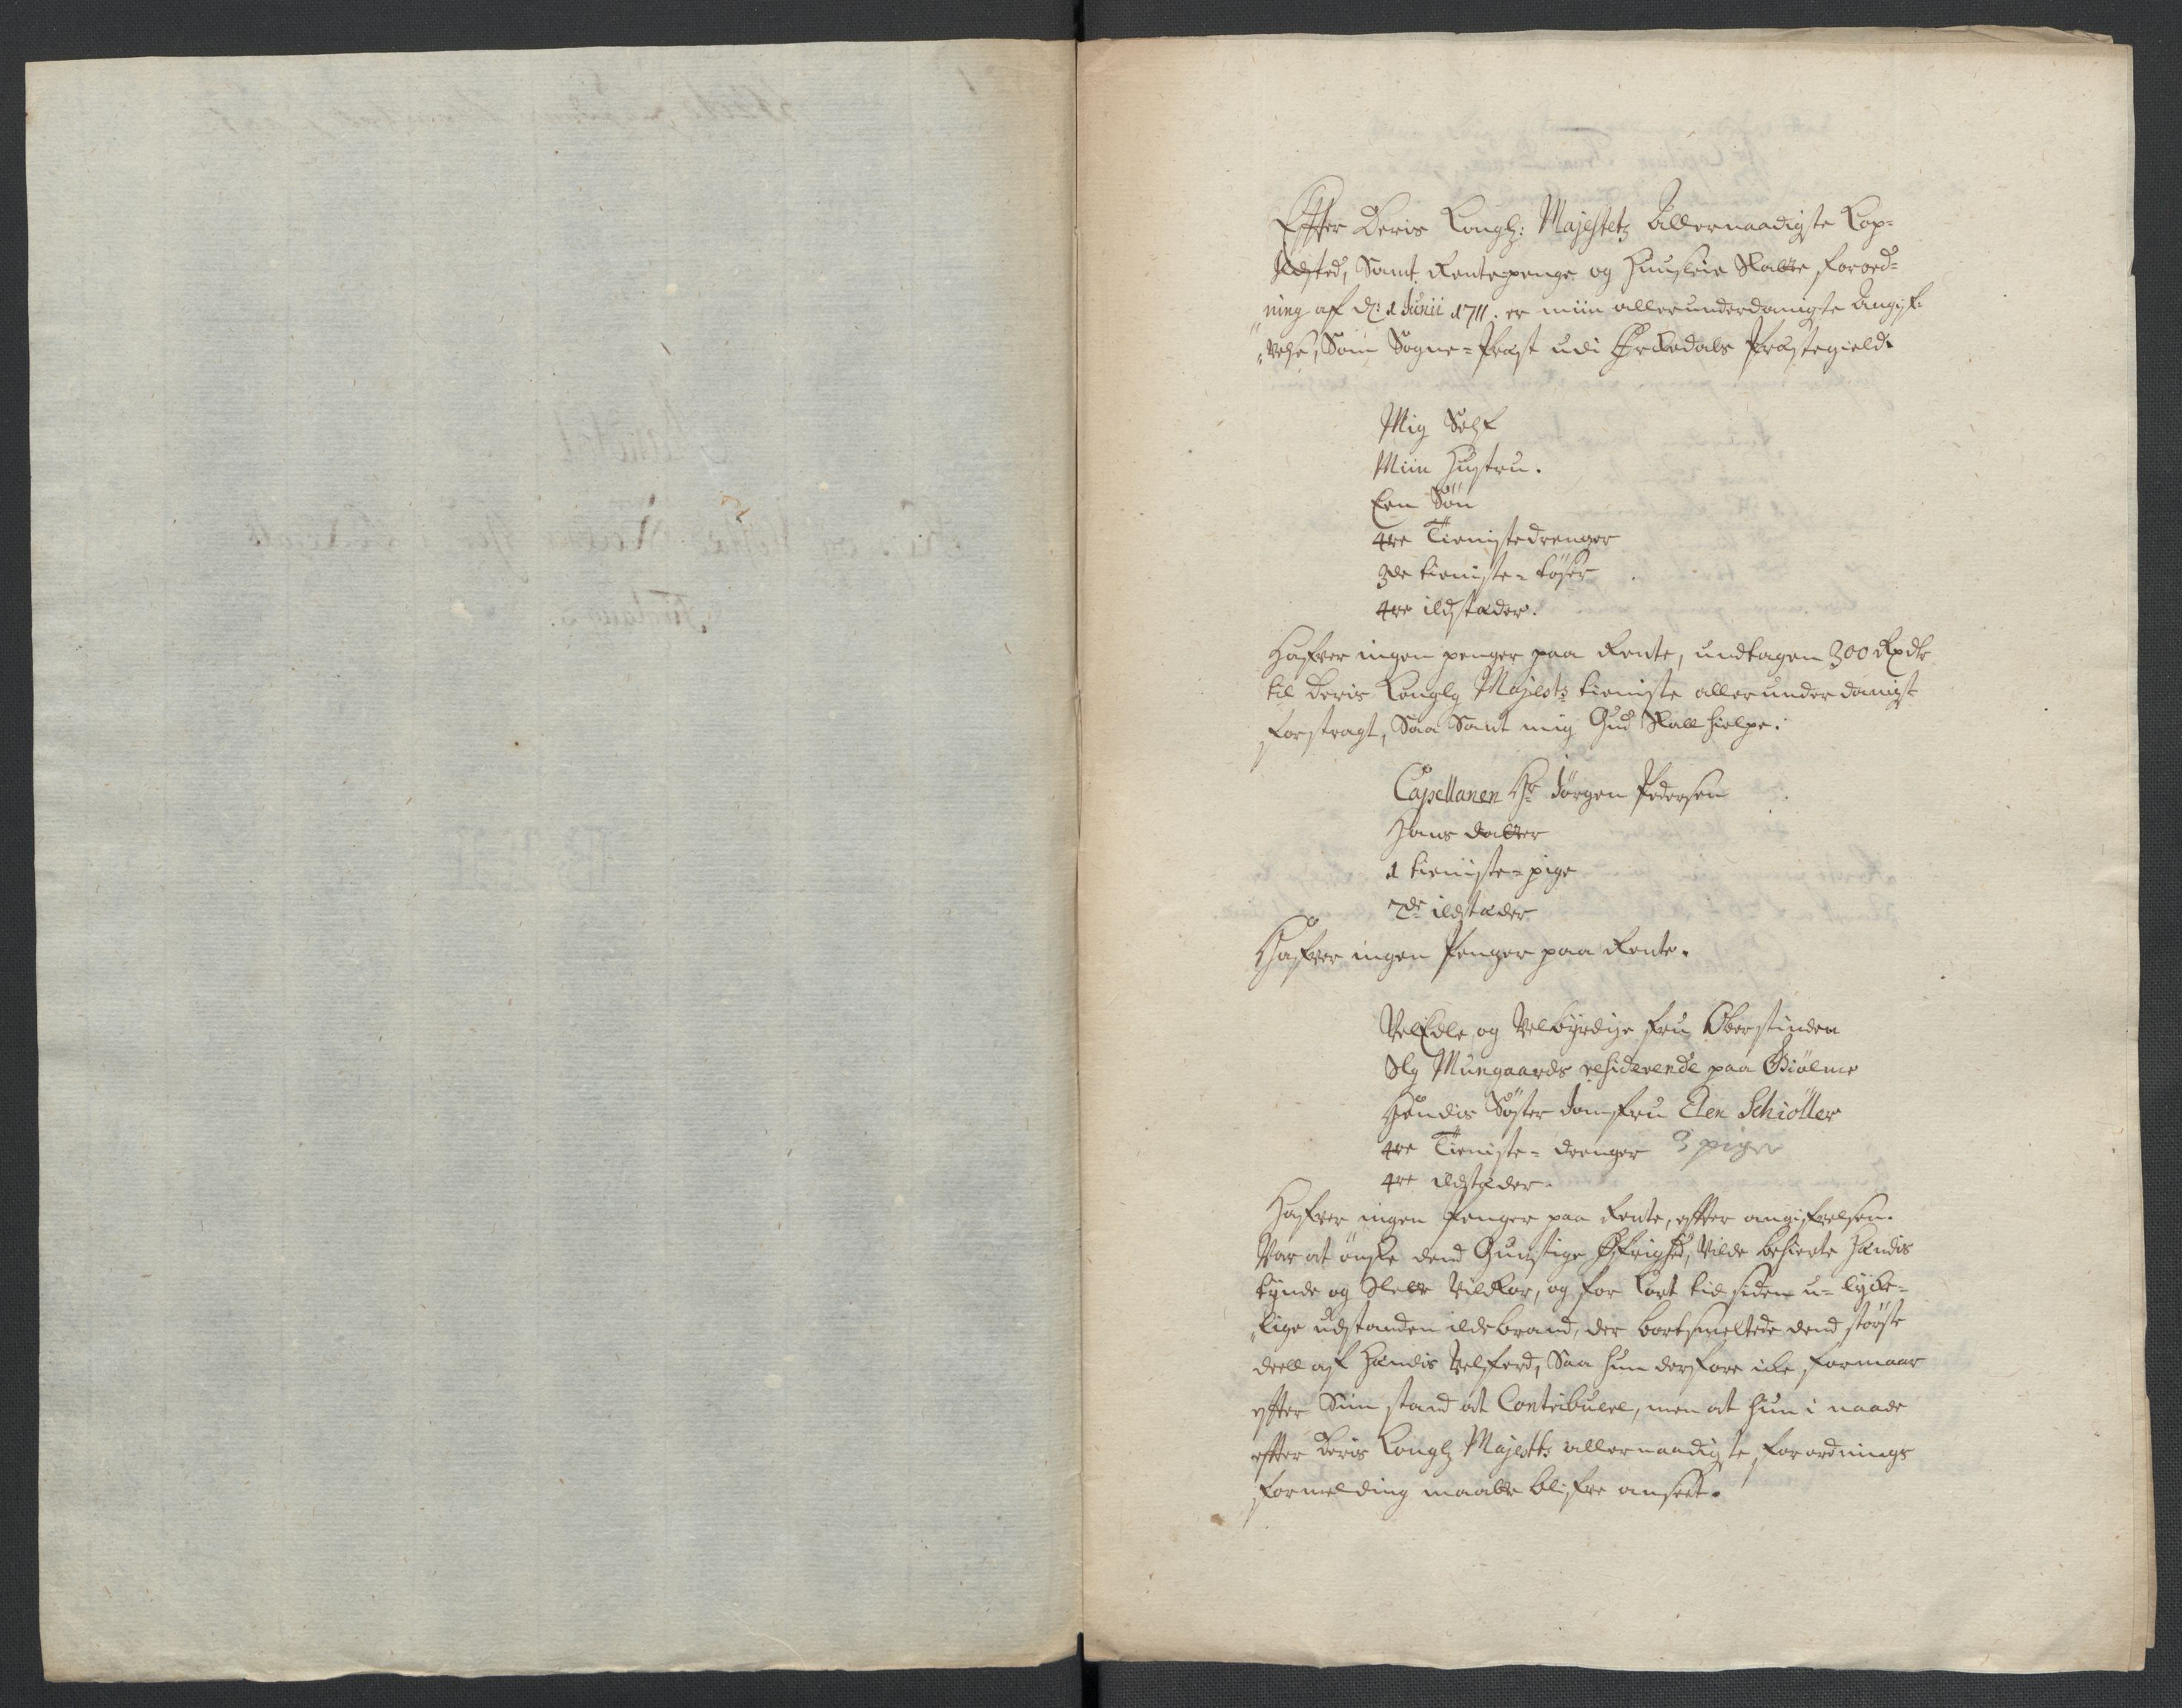 Effter Deris Kongl: Majestetz Allernaadigste Kop-
Ildsted, Samt Rentepenge og Huusleie Skatte forord-
ning af d: 1 Junii 1711. er miin allerunderdanigste Angif-
velse, Som Sogne-Præst udiØrkedals Præstegield.
Mig Self
Miin Hustru.
Een Søn
4re Tienistedrenger
3de tieniste-tøser
4re ildstæder.
Hafver ingen penger paa Rente, undtagen 300 Rixdlr
til Deris Konglg Majests tieniste allerunderdanigst
forstragt, Saa Sant mig Gud Skall hielpe.
Capellanen Hr Jørgen Pedersen
Hans datter
1 tieniste-pige
2de ildstæder
Hafver ingen Penger paa Rente.
VelEdle og Velbyrdige fru Oberstinden
Slg Mungaards residerende paa Giølme
Hendis Søster Jomfru Elen Schiøller
4re Tieniste-drenger 3 piger
4re ildstæder.
Hafver ingen Penger paa Rente, effter angifvelsen.
Var at ønske dend Gunstige Øfrighed, Vilde behierte Hændis
tynde og Slette Vilkor, og for kort tid siden u-lycke-
lige udstanden ildebrand, der bortsmeltede dend største
deell af Hændis Velferd, Saa hun derfore icke formaar
effter Siin stand at Contribuere, men at hun i naade
effter Deris Kongl Majestts allernaadigste forordnings
formelding maatte blifve anseet.